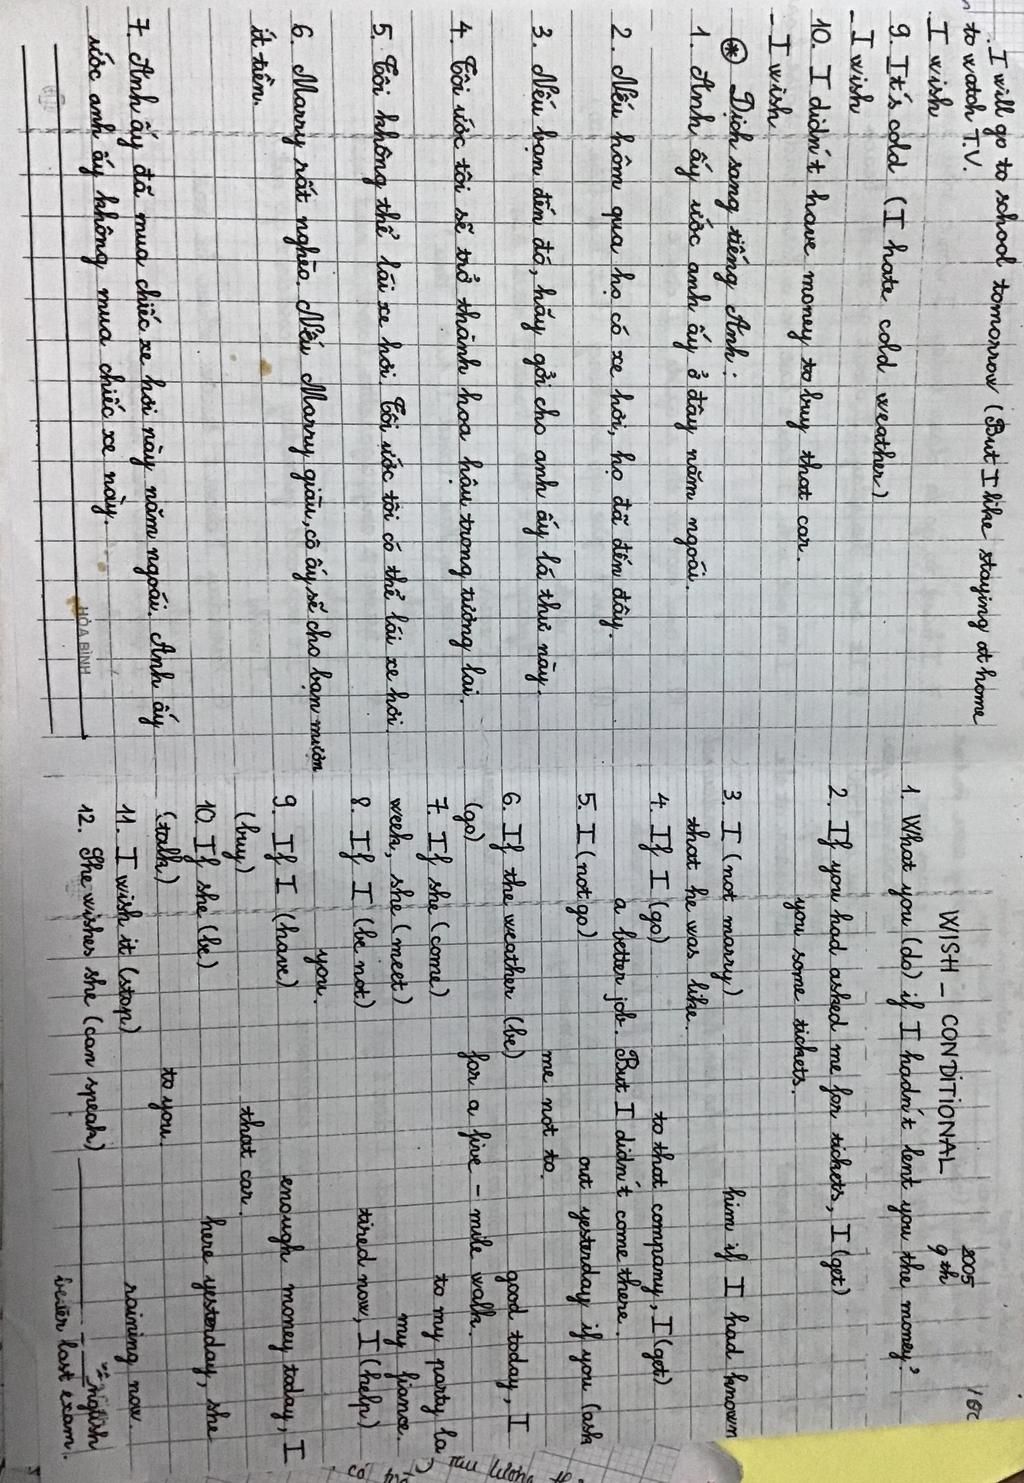 .I will go to school tomorrow (But I like staying at home
to watch T.V.
.I wish
9. It's cold (I hate cold weather)
- I wish
10. I didn't have money to buy that car.
- I wish
* Dịch sang tiếng Anh:
1. Anh ấy ước anh ấy ở đây năm ngoái.
2. Nếu hôm qua họ có xe hơi, họ đã đến đây.
3. Nếu bạn đến đó, hãy gởi cho anh ấy lá thư này.
4. Tôi ước tôi sẽ trở thành hoa hậu trong tương lai.
5. Tôi không thể lái xe hơi. Tôi ước tôi có thể lái xe hơi.
6. Marry rất nghèo. Nếu Marry giàu, cô ấy sẽ cho bạn mượn
ít tiền.
7. Anh ấy đã mua chiếc xe hơi này năm ngoái. Anh ấy
ước anh ấy không mua chiếc xe này.
HÒA BÌNH
2005
WISH - CONDITIONAL 9th
1. What you (do) if I hadn't lent you the money?
2. If you had asked me for tickets, I (get)
you some tickets.
3. I (not marry) him if I had known
that he was like.
4. If I (go) to that company, I (get)
a better job. But I didn't come there.
5. I (not go) out yesterday if you (ask
me not to.
6. If the weather (be) good today, I
(go) for a five - mile walk.
7. If she (come) to my party la
week, she (meet) my fiance.
8. If I (be not) tired now, I (help)
you.
9. If I (have) enough money today, I
(buy) that car.
10. If she (be) here yesterday, she
(talk) to you.
11. I wish it (stop) raining now.
12. She wishes she (can speak) English
better last exam.